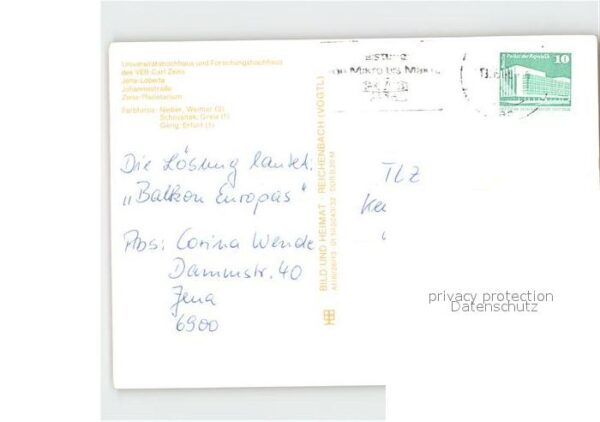 Universitätshochhaus und Forschungshochhaus
des VEB Carl Zeiss
Jena-Lobeda
Johannisstraße
Zeiss-Planetarium
Farbfotos: Nieber, Weimar (2)
Gerig, Erfurt (1)
Die Lösung lautet:
„Balkon Europas"
Abs: Corina Wende
Dammstr. 40
Jena
6900
BILD UND HEIMAT REICHENBACH (VOGTL)
von Mikro bis Makro
Palast der Republik
10
TLZ
privacy protection
Datenschutz